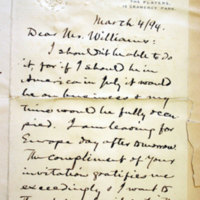 THE PLAYERS
16 GRAMERCY PARK
March 4/94.
Dear Mr. Williams:
I should not be able to
do it, for if I should be in
America in July it would
be on business & my
time would be fully occu-
pied. I am leaving for
Europe day after to-morrow.
The compliment of your
invitation gratifies me
exceedingly & I want to